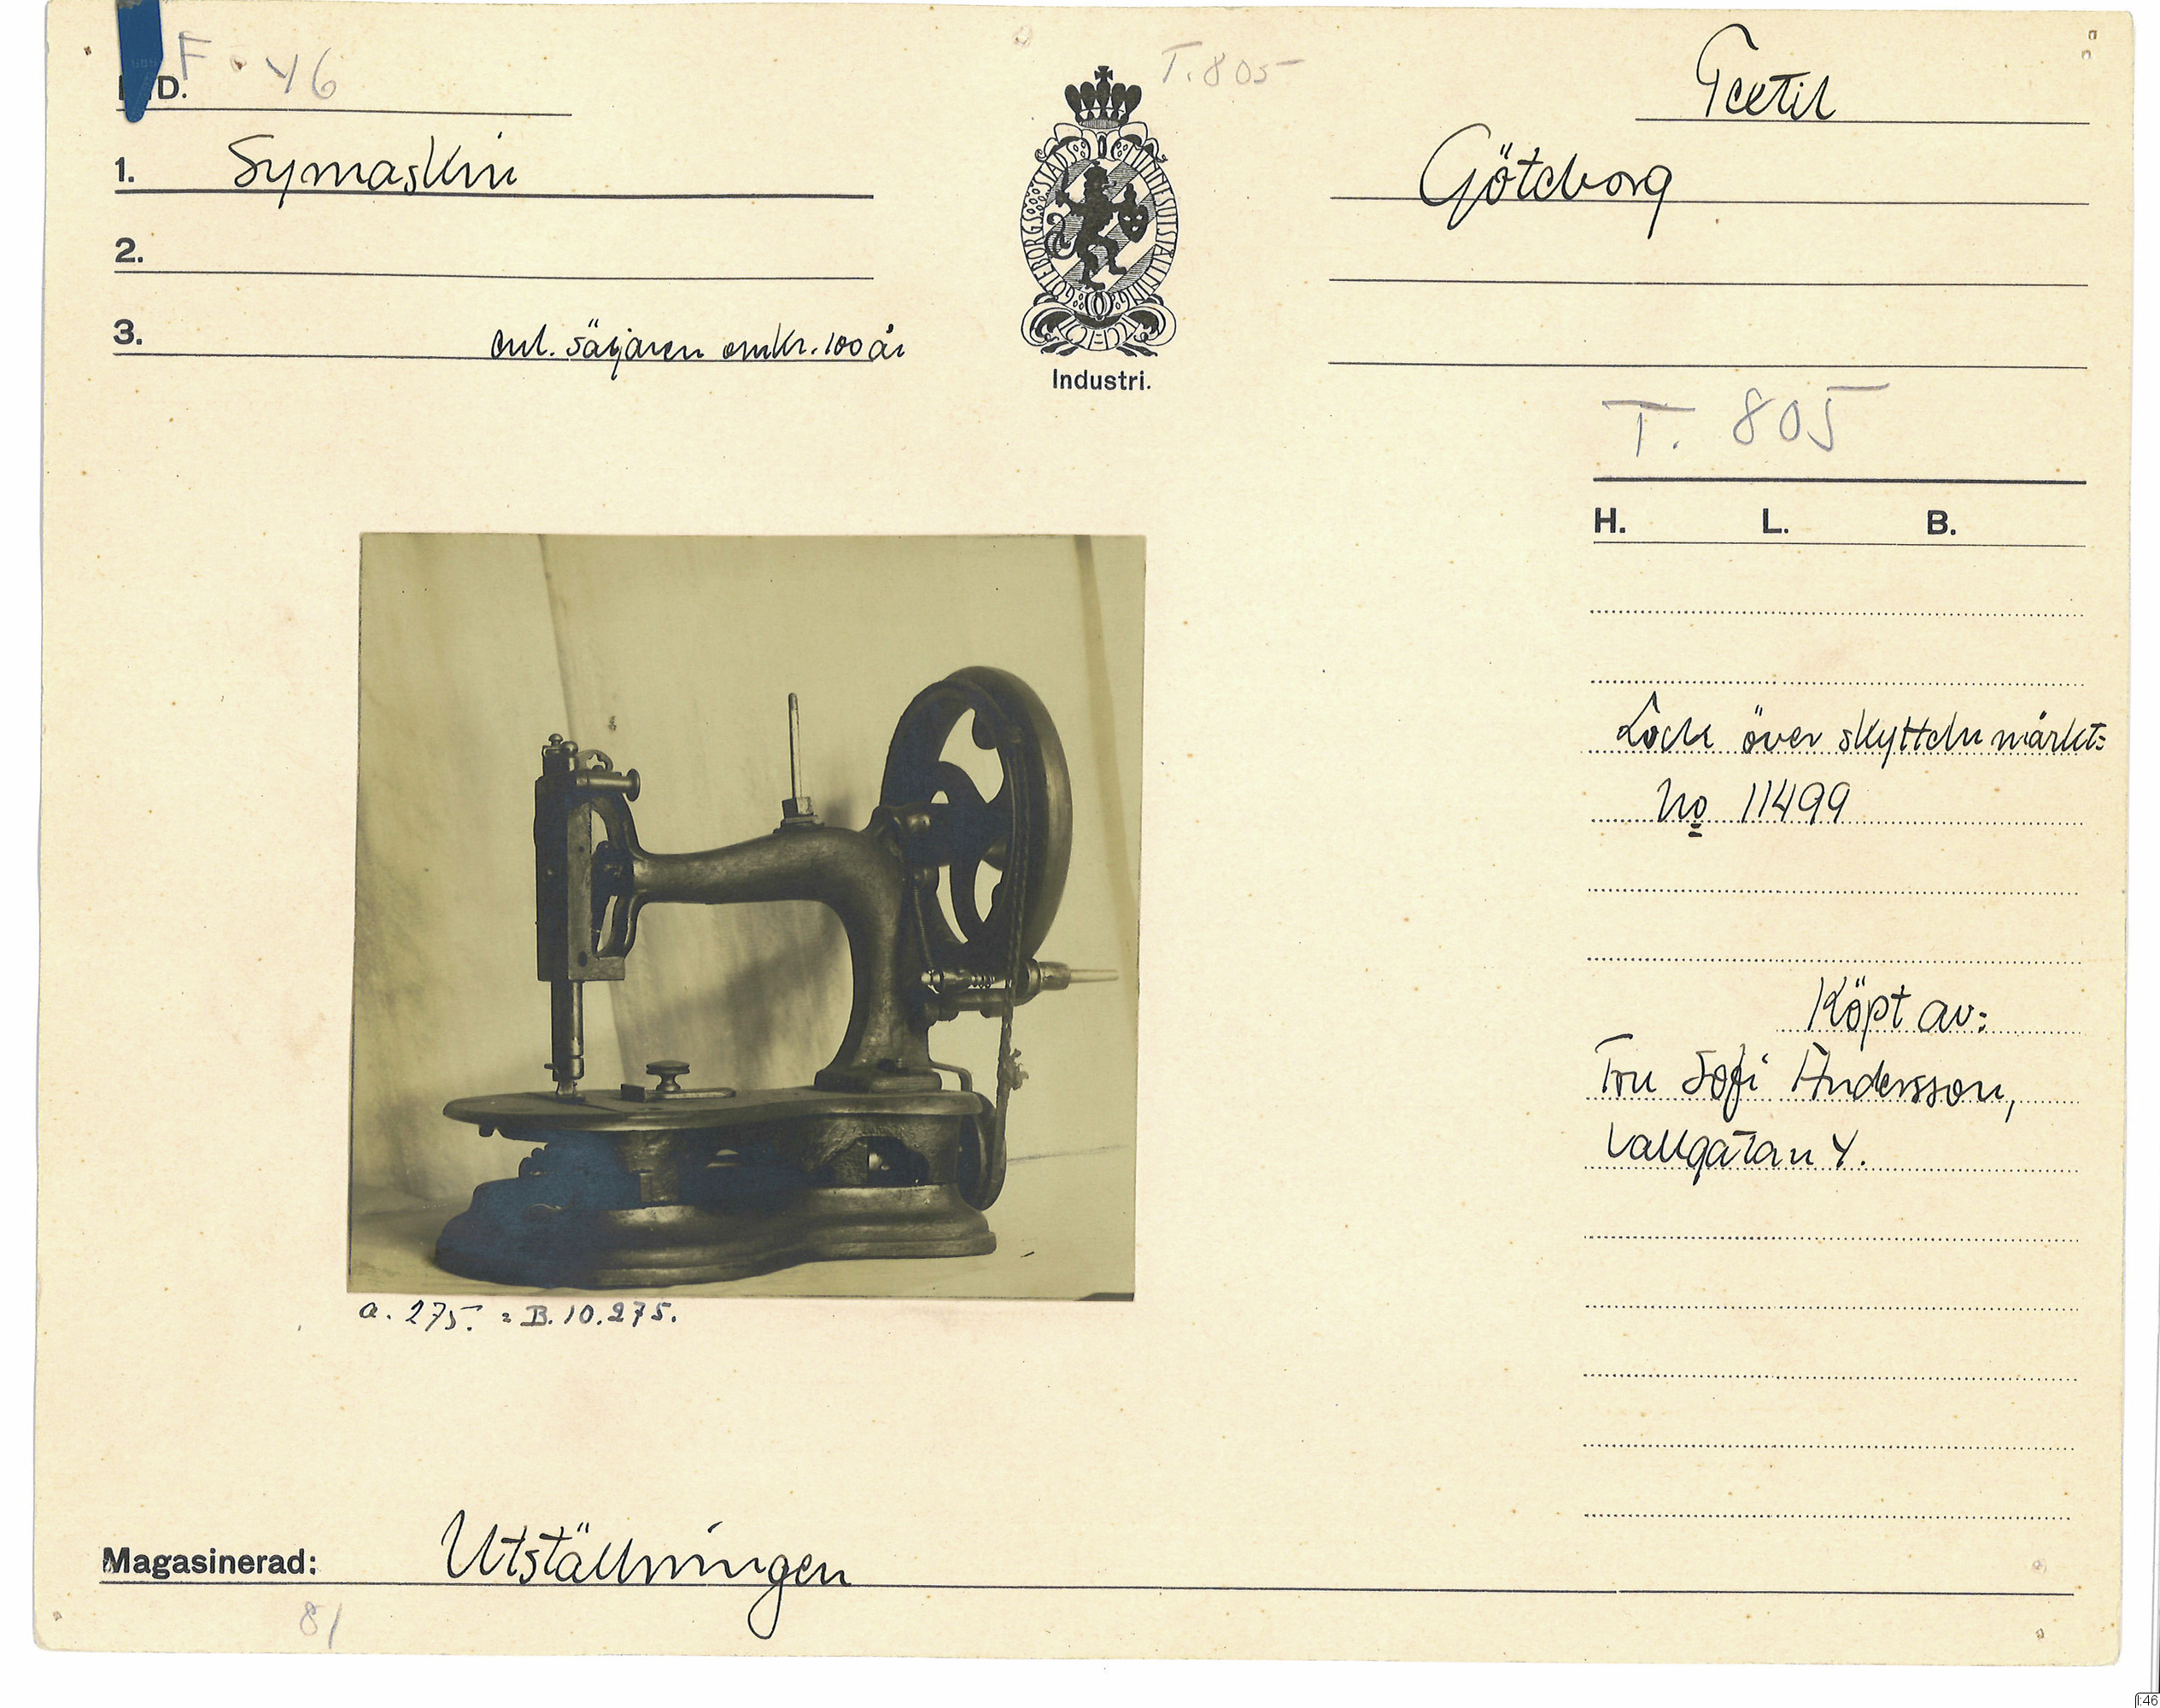 F. 46
D.
T. 805
Textil
1. Symaskin
Göteborg
2.
3. enl. säljaren omkr. 100 år
GÖTEBORGS STADS MINNESUTSTÄLLNING
Industri.
T. 805
H. L. B.
Lock över skytteln märkt:
No 11499
Köpt av:
Fru Sofi Andersson,
Vallgatan 4.
a. 275. = B. 10.275.
Magasinerad: Utställningen
81
I:46